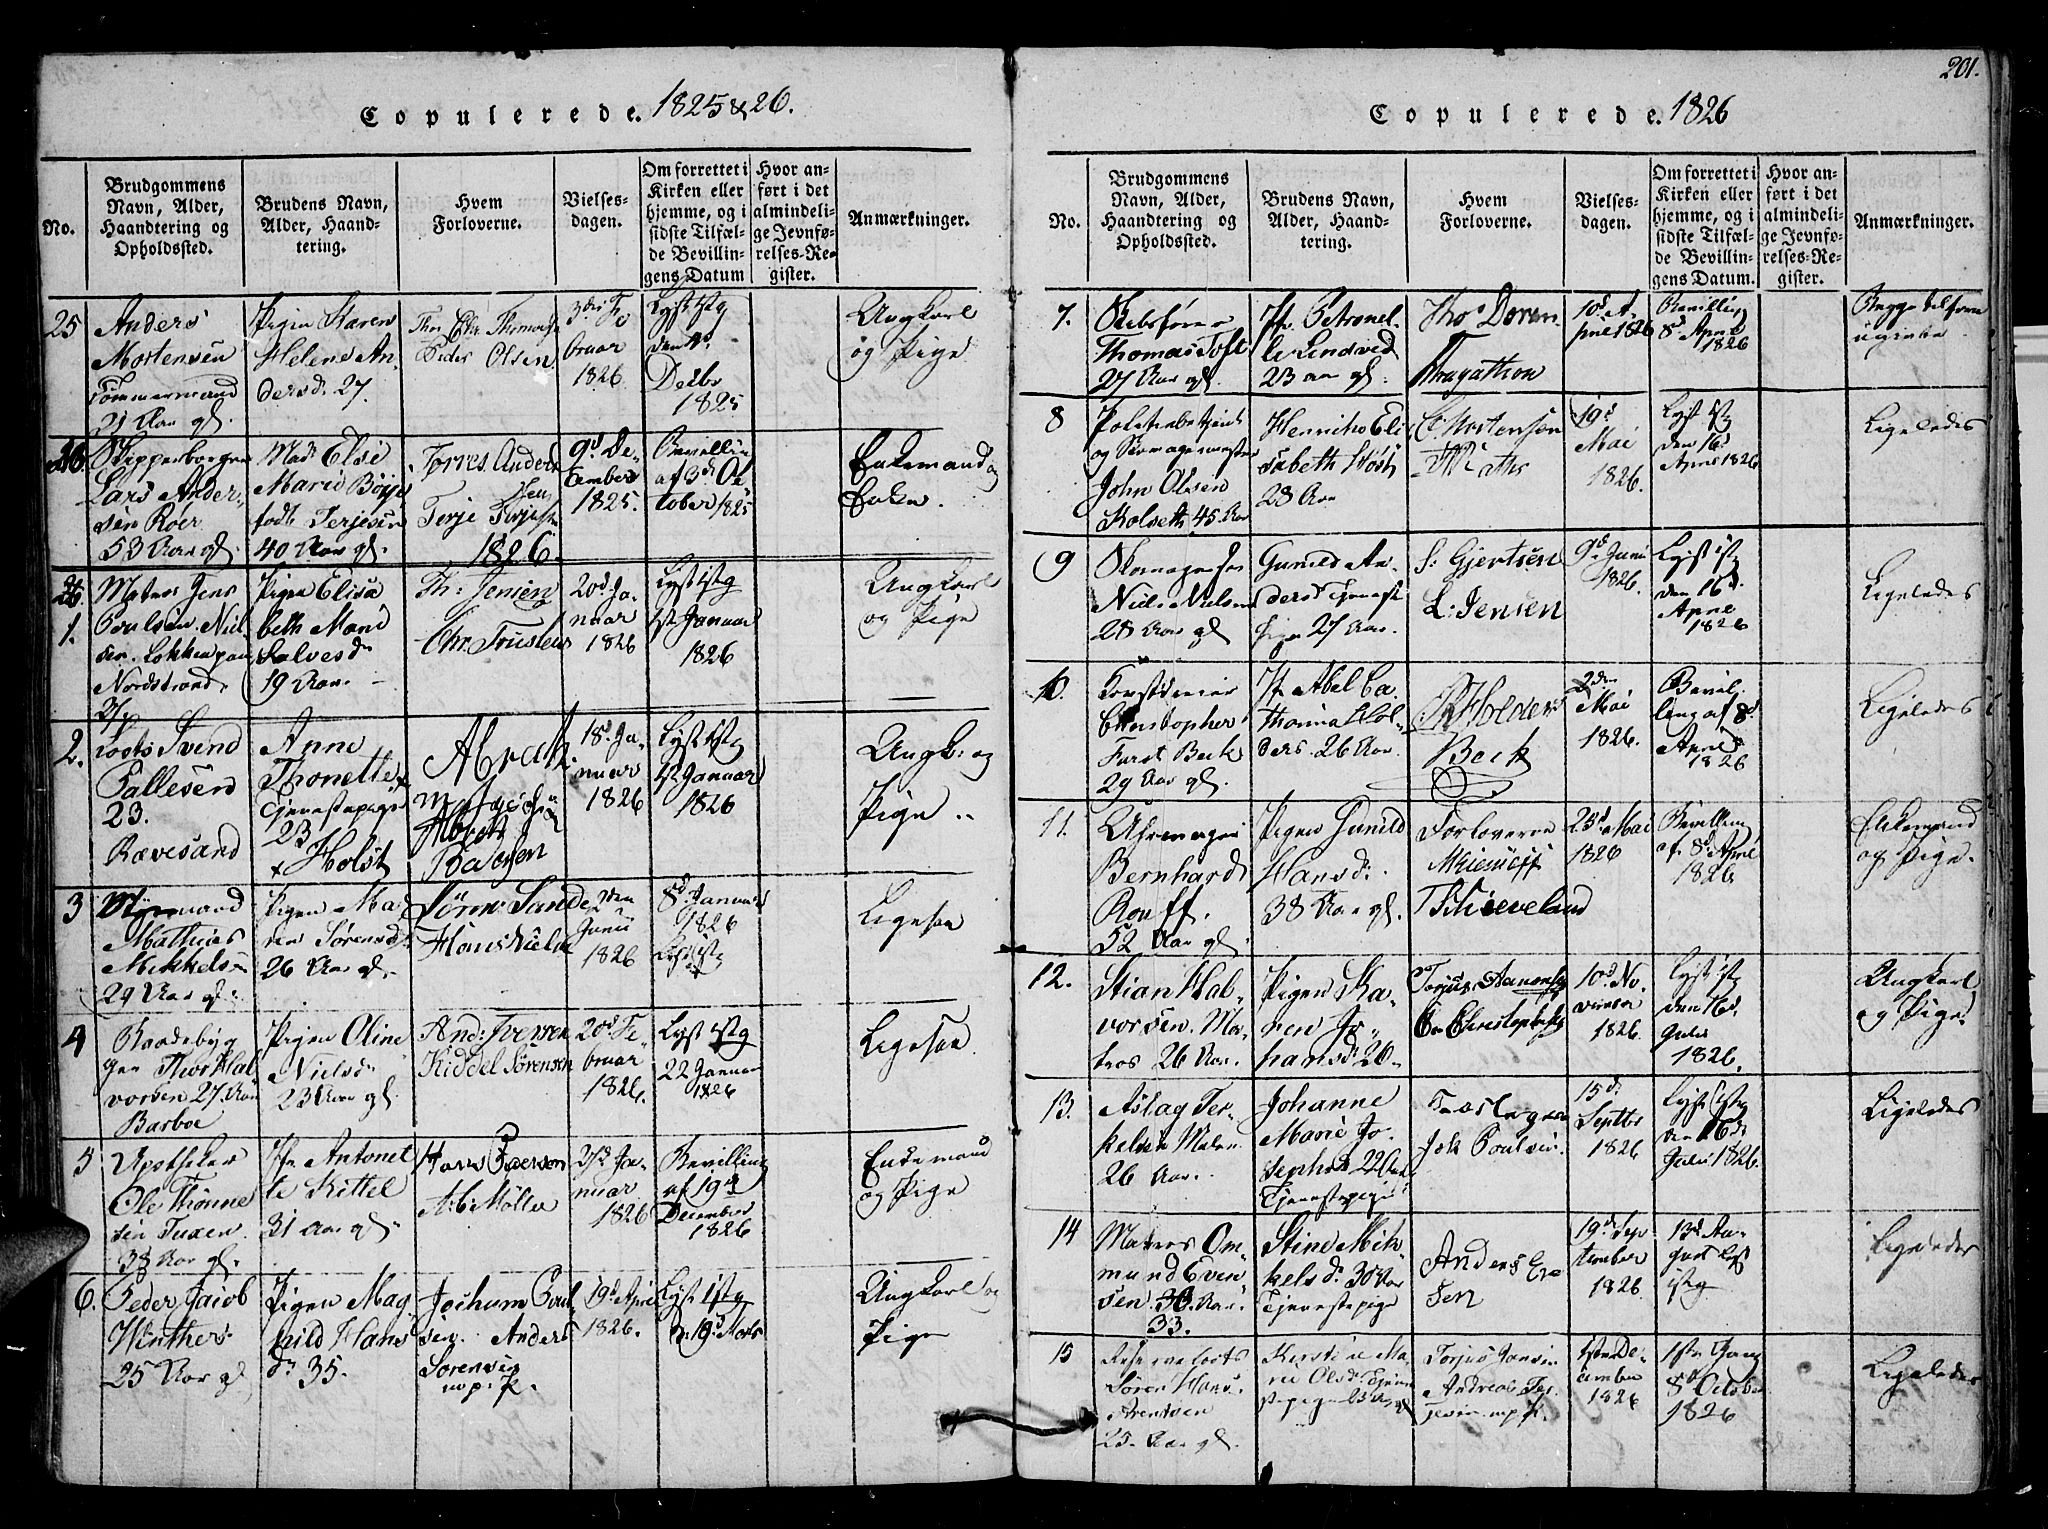 Copulerede. 1825 & 26.
No.
Brudgommens
Navn, Alder,
Haandtering og
Opholdssted.
Brudens Navn,
Alder, Haand-
tering.
Hvem
Forloverne.
Vielses-
dagen.
Om forrettet i
Kirken eller
hjemme, og i
sidste Tilfæl-
de Bevillin-
gens Datum
Hvor an-
ført i det
almindeli-
ge Jevnfø-
relses-Re-
gister.
Anmærkninger.
25
Anders
Mortensen
Tømmermand
21 Aar gl.
Pigen Karen
Helene An-
dersd. 27.
Peder Olsen
3die Fe
bruar
1826.
Lyst 1ste g
Decbr
1825
Ungkarl
og Pige
26.
Skipperborger
Lars Ander-
sen Röer
53 Aar gl.
Mad. Elsie
Marie Böye
födt Terjesen
40 Aar gl.
Torres Anders
Terje Terjesen
1826.
9d De-
cember
1825.
Bevilling
af 3d Oc
tober 1825
Enkemand og
Enke.
1.
Matros Jens
Poulsen Niel
sen
Nordstrand
Pigen Elisa
beth Marie
Salvesdr
19 Aar.
Th: Jensen
20d. Ja-
nuar
1826
Lyst 1ste g
1st Januar
1826
Ungkarl
og Pige
2.
Lods Svend
Pallesen
23.
Rævesand
Anne
Thonette
Tjenestepige
23
x Holst
18d. Ja-
nuar
1826
Lyst 1ste g
1st Januar
1826
Ungk: og
Pige
3
Mathias
Mikkelsen
29 Aar gl.
Pigen Ma
ren Sörensd
26 Aar gl.
Sören Sande
Hans Nielsen
2den
Junii
1826
8d Januar
1826
Ligesaa
4
Thor Hal
vorsen 27 Aar
Barboe
Pigen Oline
Nielsdr
23 Aar gl.
And: Iversen
Kiddel Sörensen
20d. Fe
bruar
1826.
Lyst 1ste g
22 Januar
1826
Ligesaa
5
Apotheker
Ole Thönne
sen Tuxen
38 Aar gl.
Jfr Antonet
te Kittel
31 Aar gl.
Hans Pedersen
A: Möller
27d Ja-
nuar
1826
Bevilling
af 19d
December
1826
Enkemand
og Pige
6.
Peder Jacob
Winther
25 Aar gl
Pigen Mag
nild Hans
dr 35.
Jochum Poul
sen. Anders
Sörensen
m. p. P.
19d April
1826.
Lyst 1ste g
d. 19d Marts
Ungkarl og
Pige
201.
Copulerede. 1826
No.
Brudgommens
Navn, Alder,
Haandtering og
Opholdssted.
Brudens Navn,
Alder, Haand-
tering.
Hvem
Forloverne.
Vielses-
dagen.
Om forrettet i
Kirken eller
hjemme, og i
sidste Tilfæl-
de Bevillin-
gens Datum.
Hvor an-
ført i det
almindeli-
ge Jevnfø-
relses-Re-
gister.
Anmærkninger.
7.
Skibsförer
Thomas Toft
27 Aar gl.
Jfr. Petronel-
le Lindved
23 Aar gl.
10d. A-
pril 1826
Bevilling
8d April
1826
Begge tilforn
ugivte
8
John Olsen
Kolseth 45 Aar
Henriche Eli
sabeth Höst
28 Aar
C. Mortensen
19d
Mai
1826.
Lyst 1ste g
den 16d
April 1826
Ligeledes
9
Niels Nielsen
28 Aar gl
Gunild An-
dersd Tjeneste
pige 27 Aar.
S: Gjertsen
L: Jensen
9d Juni
1826.
Lyst 1ste g
den 16d
April
1826
Ligeledes
10.
Christopher
Furst Beck
29 Aar gl.
Jfr. Abel Ca-
thrina Hol-
ders. 26 Aar.
P. Holder
Beck
2den
Mai
1826.
Bevil-
ling af 8d
April
1826
Ligeledes
11.
Uhrmager
Bernhard
Rouff.
52 Aar gl.
Pigen Gunild
Hansd.
38 Aar gl.
Forloverne
T: Skieveland
25d Mai
1826
Bevilling
af 8d April
1826
Enkemand
og Pige.
12.
Stian Hal-
vorsen. Ma-
tros 26 Aar.
Pigen Ka-
ren Jo-
hansdr 26
Torjus Aanonsen
10d No-
vember
1826.
Lyst 1ste g
den 16d
Julii
1826.
Ungkarl
og Pige
13.
Aslag Ter-
kelsen Matros
26 Aar.
Johanne
Marie Jo-
sephsd 22 Aar
Tjenestepige
Joh Poulsen
15d
Septbr
1826
Lyst 1ste g
den 16d
Julii 1826.
Ligeledes
14
Matros Om-
mund Even
sen 30 Aar.
33.
Stine Mik-
kelsdr 30 Aar
Tjenestepige
Anders Ev-
sen
19d Sep
tember
1826
13d Au-
gust Lyst
1ste g
Ligeledes
15
Sören Hans.
Arentsen
25 Aar gl.
Kirstine Ma-
rie Olsd Tjene
stepige 23 Aar
Torjus Jansen
Andreas Ter-
jesen m. p. P.
1ste De-
cember
1826
1ste Gang
8d October
1826
Ligeledes